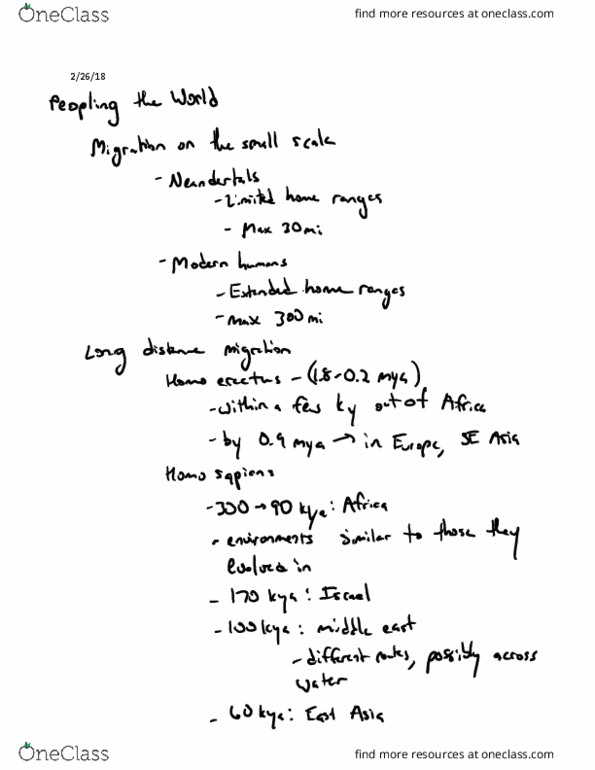 OneClass
find more resources at oneclass.com
2/26/18
Peopling the World
Migration on the small scale
- Neandertals
- Limited home ranges
- Max 30mi
- Modern humans
- Extended home ranges
- Max 300mi
Long distance migration
Homo erectus - (1.8-0.2 mya)
- within a few ky out of Africa
- by 0.9 mya → in Europe, SE Asia
Homo sapiens
- 300 → 90 kya: Africa
- environments similar to those they
evolved in
- 170 kya: Israel
- 100 kya: middle east
- different routes, possibly across
water
- 60 kya: East Asia
OneClass
find more resources at oneclass.com